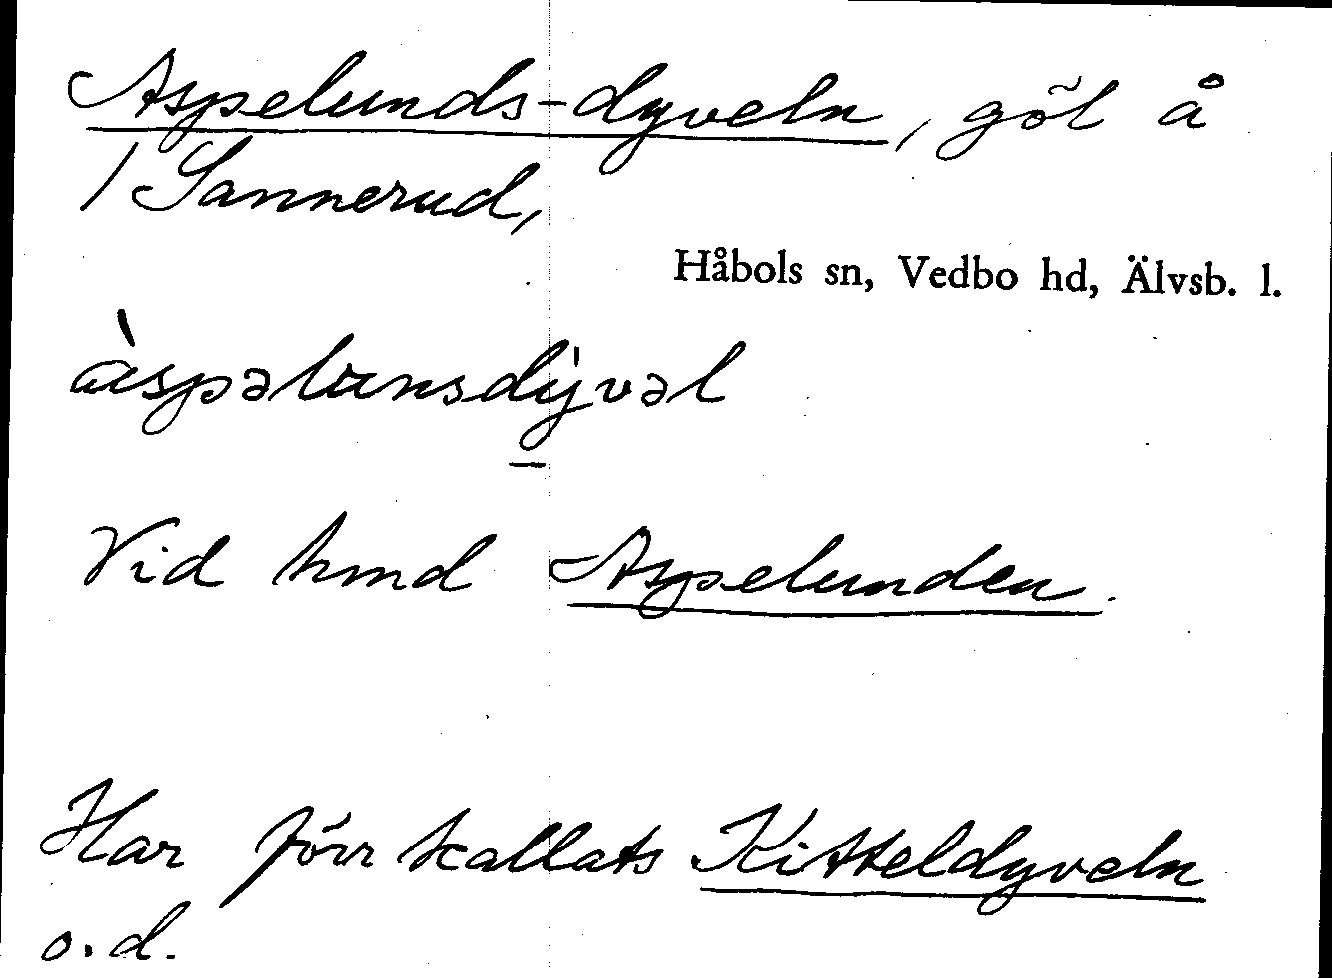 Aspelunds-dyveln, göl å
/ Sannerud,
Håbols sn, Vedbo hd, Älvsb. l.
àspəlunsdyvəl
Vid hmd Aspelunden.
Har förr kallats Kitteldyveln
o.d.